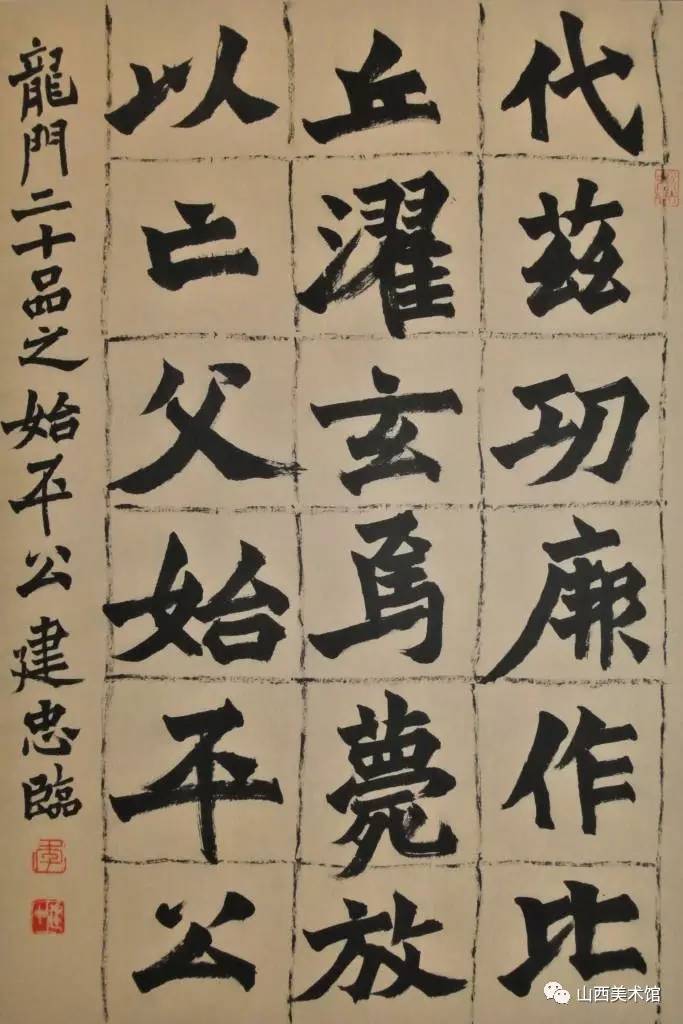 代茲功厥作比
丘濯玄焉薨放
以亡父始平公
龍門二十品之始平公建忠臨
山西美术馆